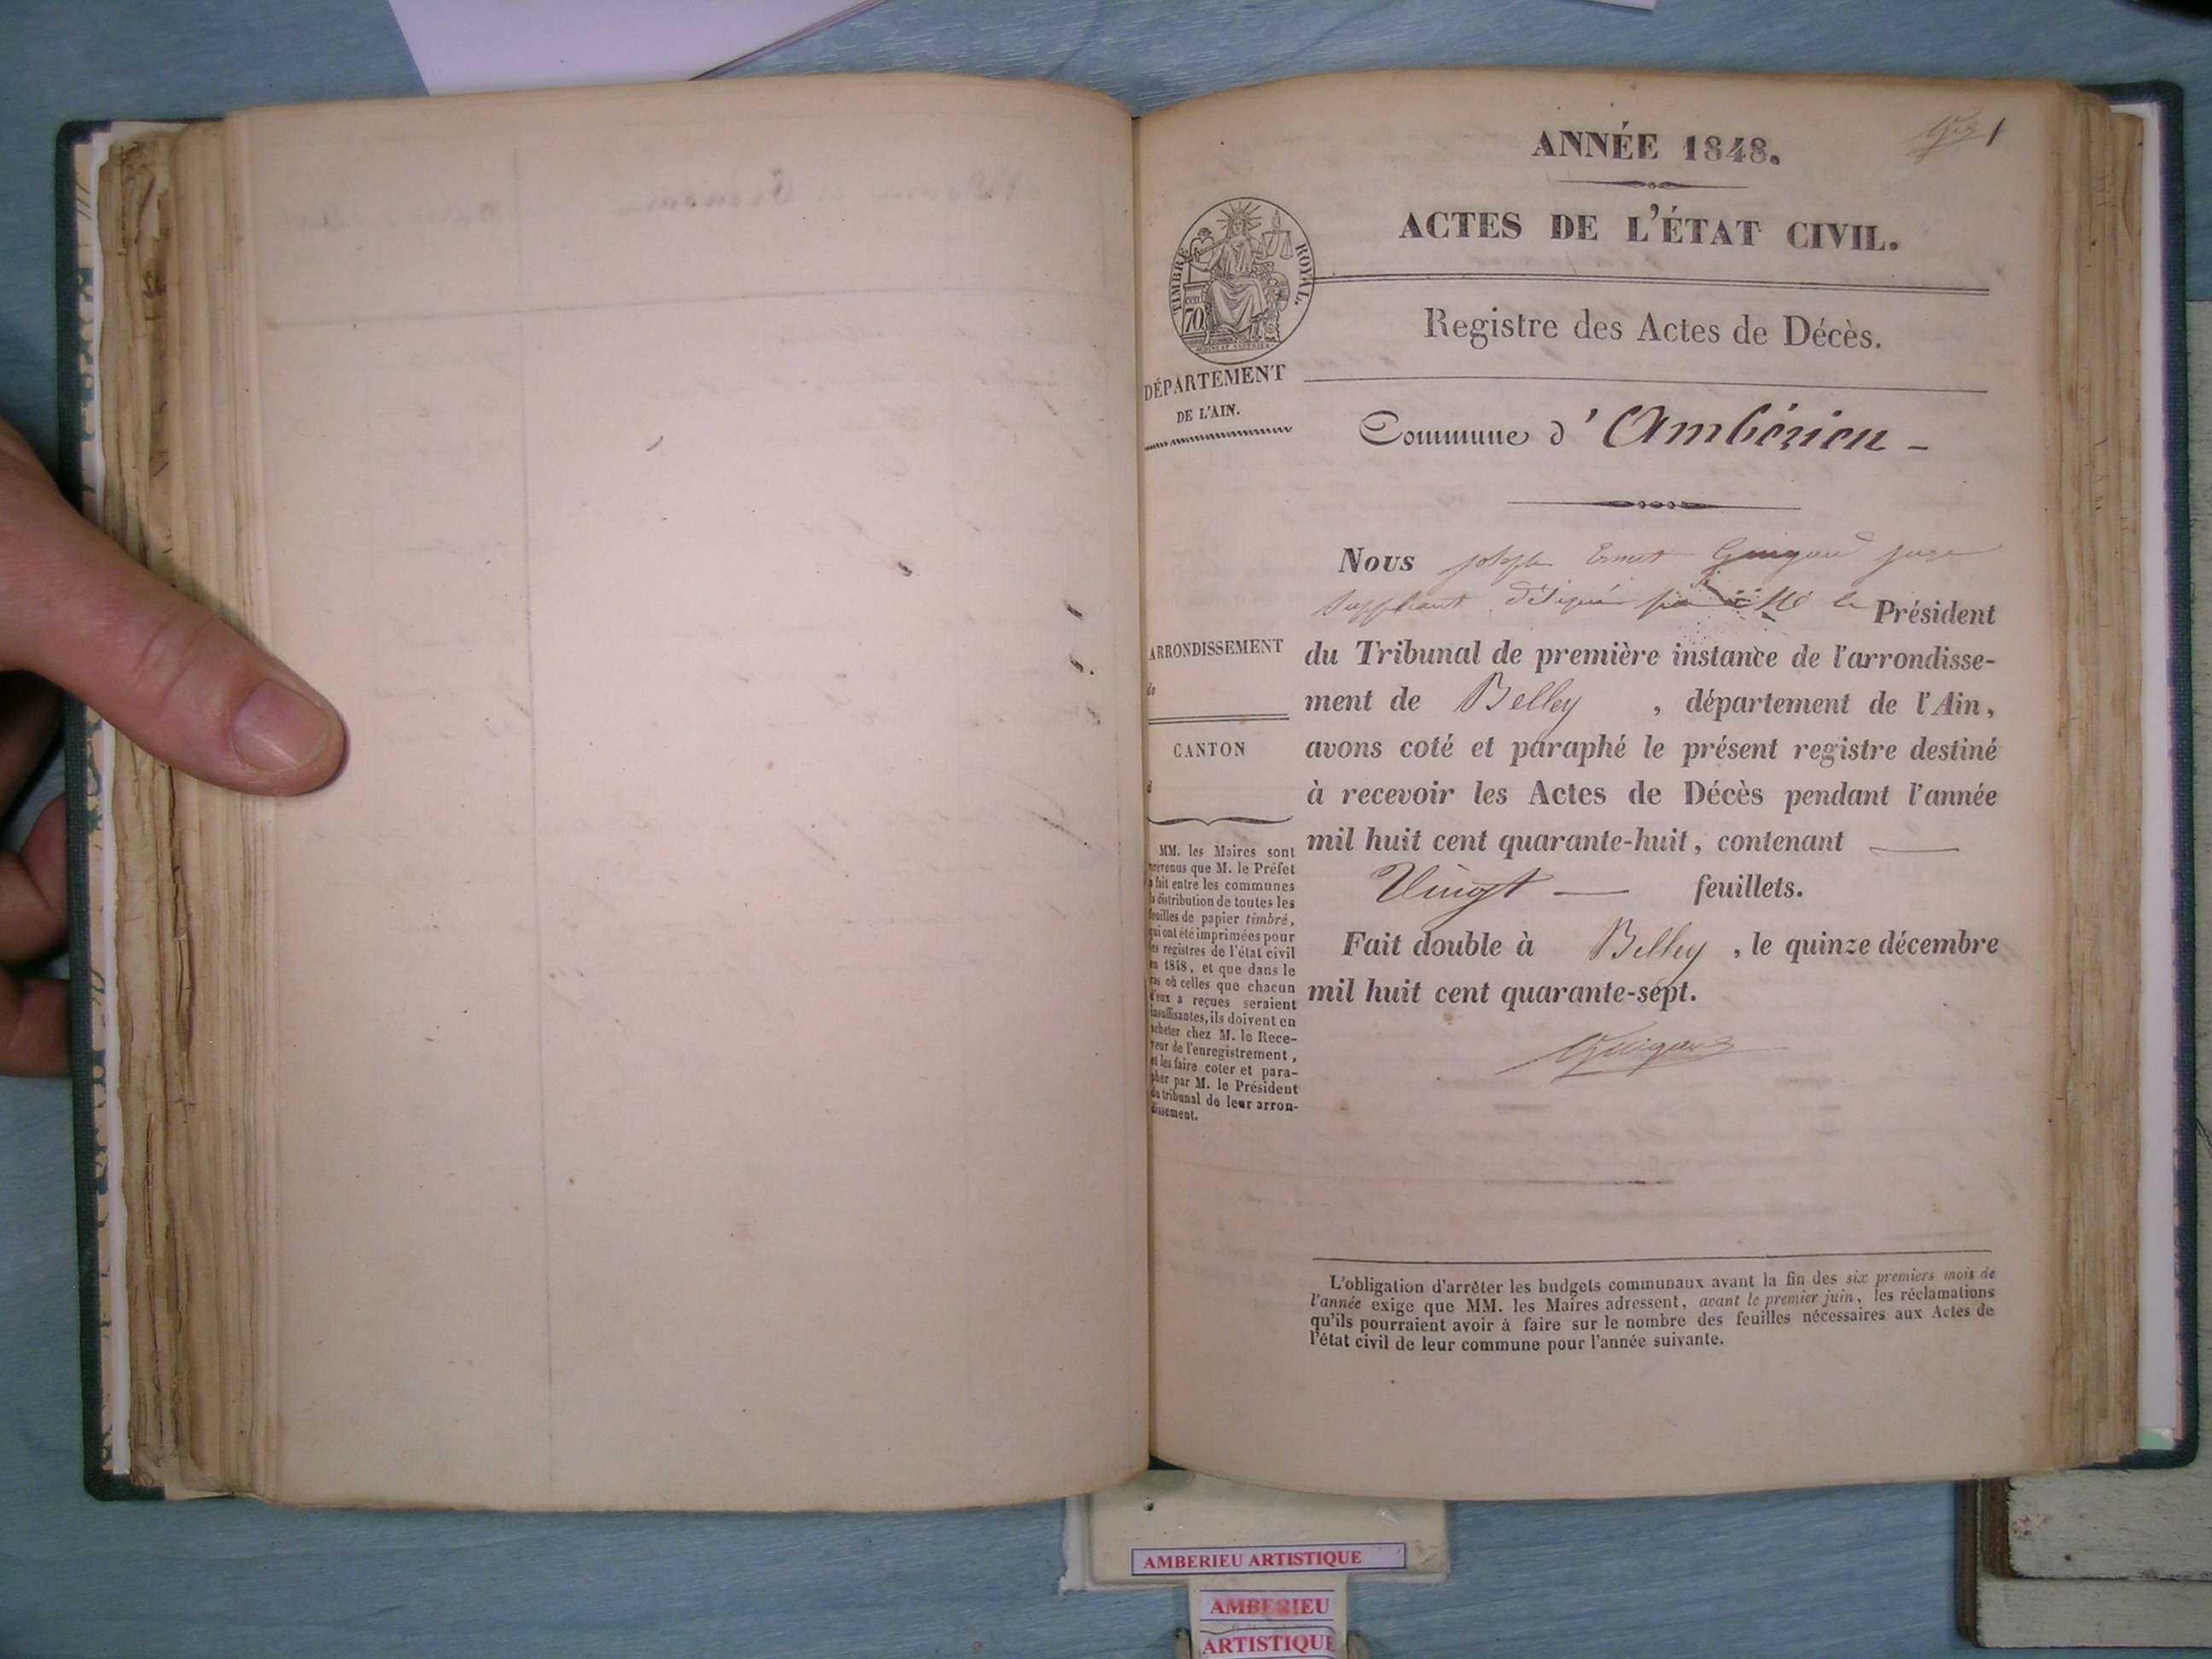 ANNÉE 1848.
1
ACTES DE L'ÉTAT CIVIL.
TIMBRE ROYAL.
cen.t
70
Registre des Actes de Décès.
DÉPARTEMENT
DE L'AIN.
Commune d'Ambérieu -
Nous joseph Ernest juge
Suppléant délégué par Mr le Président
du Tribunal de première instance de l'arrondisse-
ment de Belley, département de l'Ain,
avons coté et paraphé le présent registre destiné
à recevoir les Actes de Décès pendant l'année
mil huit cent quarante-huit, contenant —
Vingt — feuillets.
Fait double à Belley, le quinze décembre
mil huit cent quarante-sept.
ARRONDISSEMENT
de
CANTON
d
MM. les Maires sont
prévenus que M. le Préfet
a fait entre les communes
la distribution de toutes les
feuilles de papier timbré,
qui ont été imprimées pour
les registres de l'état civil
en 1848, et que dans le
cas où celles que chacun
d'eux a reçues seraient
insuffisantes, ils doivent en
acheter chez M. le Rece-
veur de l'enregistrement,
et les faire coter et para-
pher par M. le Président
du tribunal de leur arron-
dissement.
L'obligation d'arrêter les budgets communaux avant la fin des six premiers mois de
l'année exige que MM. les Maires adressent, avant le premier juin, les réclamations
qu'ils pourraient avoir à faire sur le nombre des feuilles nécessaires aux Actes de
l'état civil de leur commune pour l'année suivante.
AMBERIEU ARTISTIQUE
AMBERIEU
ARTISTIQUE